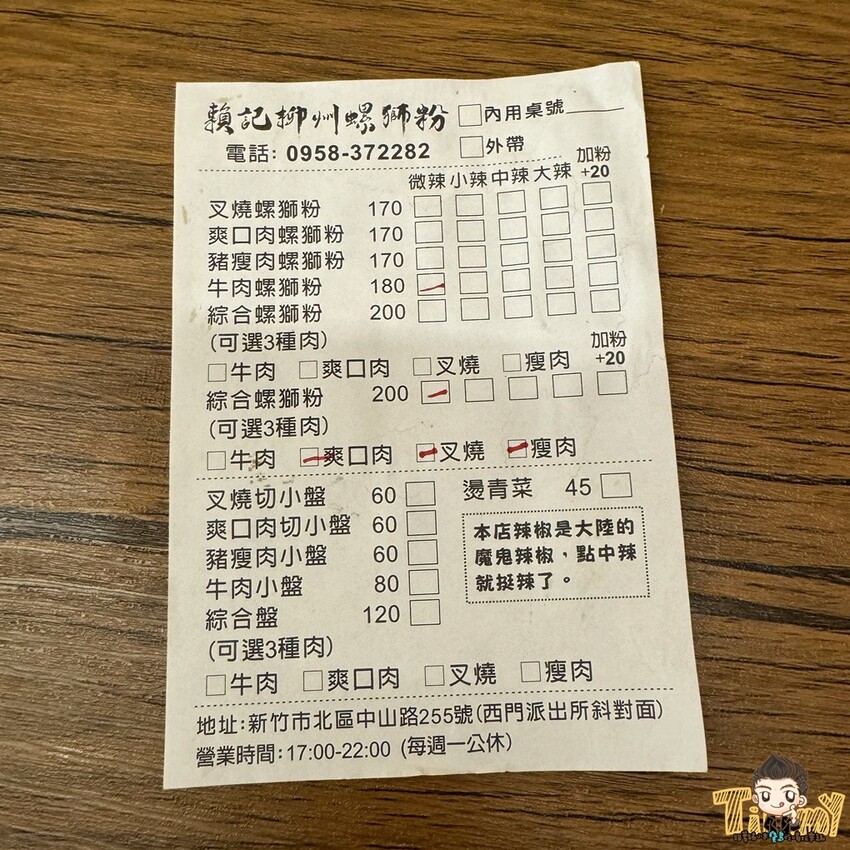 賴記柳州螺獅粉 內用桌號
電話: 0958-372282 外帶
微辣 小辣 中辣 大辣 加粉+20
叉燒螺獅粉 170
爽口肉螺獅粉 170
豬瘦肉螺獅粉 170
牛肉螺獅粉 180
綜合螺獅粉 200
(可選3種肉) 加粉+20
牛肉 爽口肉 叉燒 瘦肉
綜合螺獅粉 200
(可選3種肉)
牛肉 爽口肉 叉燒 瘦肉
叉燒切小盤 60
爽口肉切小盤 60
豬瘦肉小盤 60
牛肉小盤 80
綜合盤 120
(可選3種肉)
牛肉 爽口肉 叉燒 瘦肉
燙青菜 45
本店辣椒是大陸的
魔鬼辣椒，點中辣
就挺辣了。
地址:新竹市北區中山路255號(西門派出所斜對面)
營業時間:17:00-22:00 (每週一公休)